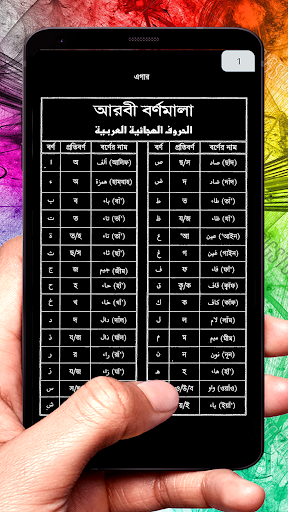 1
এগার
আরবী বর্ণমালা
الحروف الهجائية العربية
বর্ণ প্রতিবর্ণ বর্ণের নাম বর্ণ প্রতিবর্ণ বর্ণের নাম
ا অ ألف (আলিফ) ص ছ/স صاد
ء অ همزة (হামযাহ) ض দ ضاد
ب ব باء (বা') ط ত طاء
ت ত تاء (তা') ظ য/জ ظاء
ة ত/হ تاء (তা') ع 'আ عين ('আইন)
ث ছ/স ثاء غ গ غين (গাইন)
ج জ جيم (জীম) ف ফ فاء (ফা')
ح হ حاء (হা') ق ক্ব/ক قاف (ক্বাফ)
خ খ خاء (খা') ك ক كاف (কাফ)
د দ دال (দাল) ل ল لام (লাম)
ذ য/জ ذال م ম ميم (মীম)
ر র راء (রা') ن ন نون (নূন)
ز য/জ ه হ هاء (হা')
س و ও/উ/ব واو (ওয়াও)
ش ي য়/ই ياء (ইয়া')